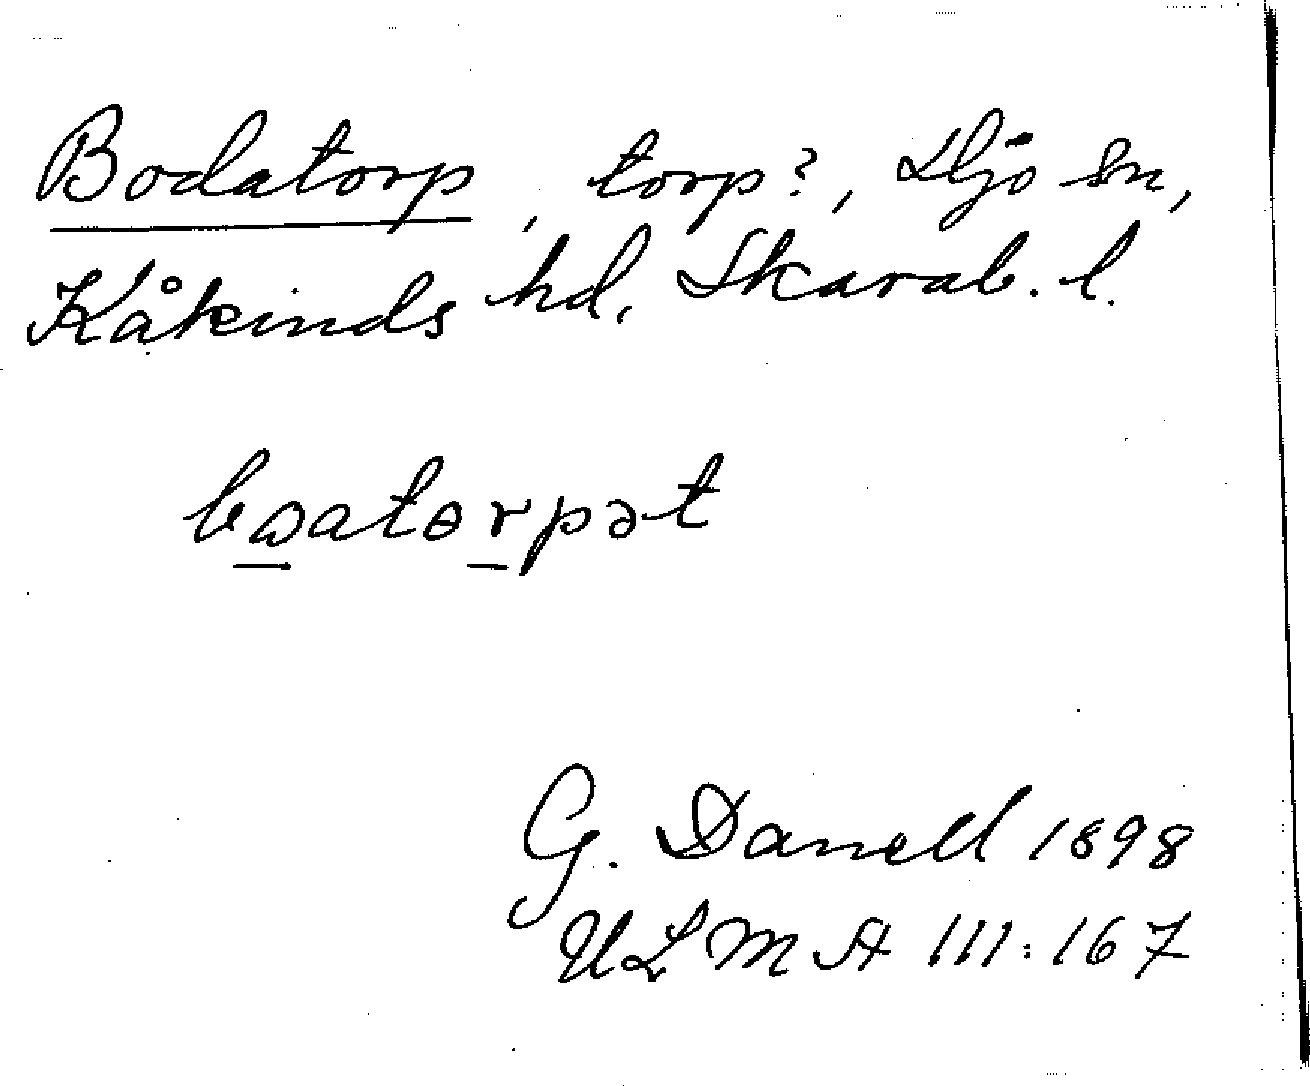 Bodatorp, torp?, Hjo sn,
Kåkinds hd, Skarab. l.
bωatɵrpət
G. Danell 1898
ULMA 111:167